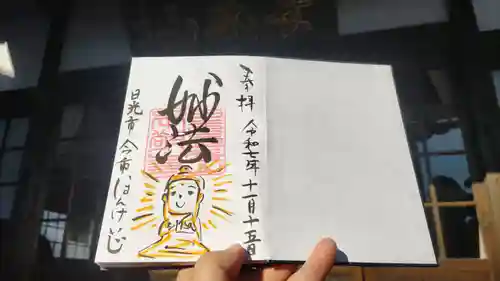 奉拝 令和七年 十一月十五日
妙法
日光市 今市 ほんけいじ